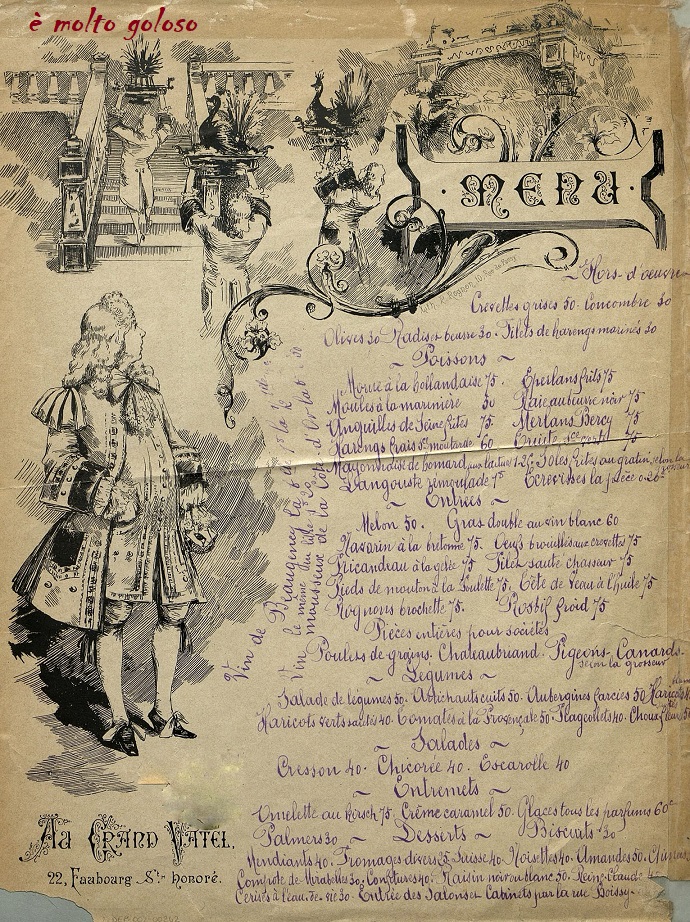 è molto goloso
MENU
Hors-d'oeuvre
Crevettes grises 50. Concombre 30
Olives 30 Radis et beurre 30. Filets de harengs marinés 50
~ Poissons ~
Morue à la hollandaise 75. Eperlans frits 75
Moules à la marinière 50 Raie au beurre noir 75
Anguilles de Seine frites 75 Merlans Bercy 75
Harengs frais sce moutarde 60 Truite sce 75
Mayonnaise de homard 1.25 Soles frites au gratin, selon la grosseur
Langouste rémoulade Ecrevisses la pièce 0.20
~ Entrées ~
Melon 50. Gras double au vin blanc 60
Navarin à la bretonne 75. Oeufs brouillés aux crevettes 75
Fricandeau à la gelée 75 Filet sauté chasseur 75
Pieds de mouton à la Poulette 75. Tête de Veau à l'huile 75
Rognons brochette 75. Rosbif froid 75
Pièces entières pour sociétés
Poulets de grains. Chateaubriand. Pigeons. Canards.
selon la grosseur
~ Légumes ~
Salade de légumes 50. Artichauts cuits 50. Aubergines farcies 50 Haricots
Haricots verts sautés 40 Tomates à la Provençale 50. Flageollets 40. Choux fleurs 50
~ Salades ~
Cresson 40. Chicorée 40. Escarolle 40
~ Entremets ~
Omelette au Kirsch 75. Crème caramel 50. Glaces tous les parfums 60c
Palmers 30 ~ Desserts ~ Biscuits 30
Mendiants 40. Fromages divers 25 Suisse 40. Noisettes 40. Amandes 50.
Compote de Mirabelles 30. Confitures 40. Raisin noir ou blanc 50. Reine-Claude 40
Cerises à l'eau-de-vie 30. Entrée des Salons et Cabinets par la rue Boissy.
Vin de Beaugency la
Vin le même du litre
mousseux de la Côte d'Or la
Au Grand Vatel.
22, Faubourg St-Honoré.